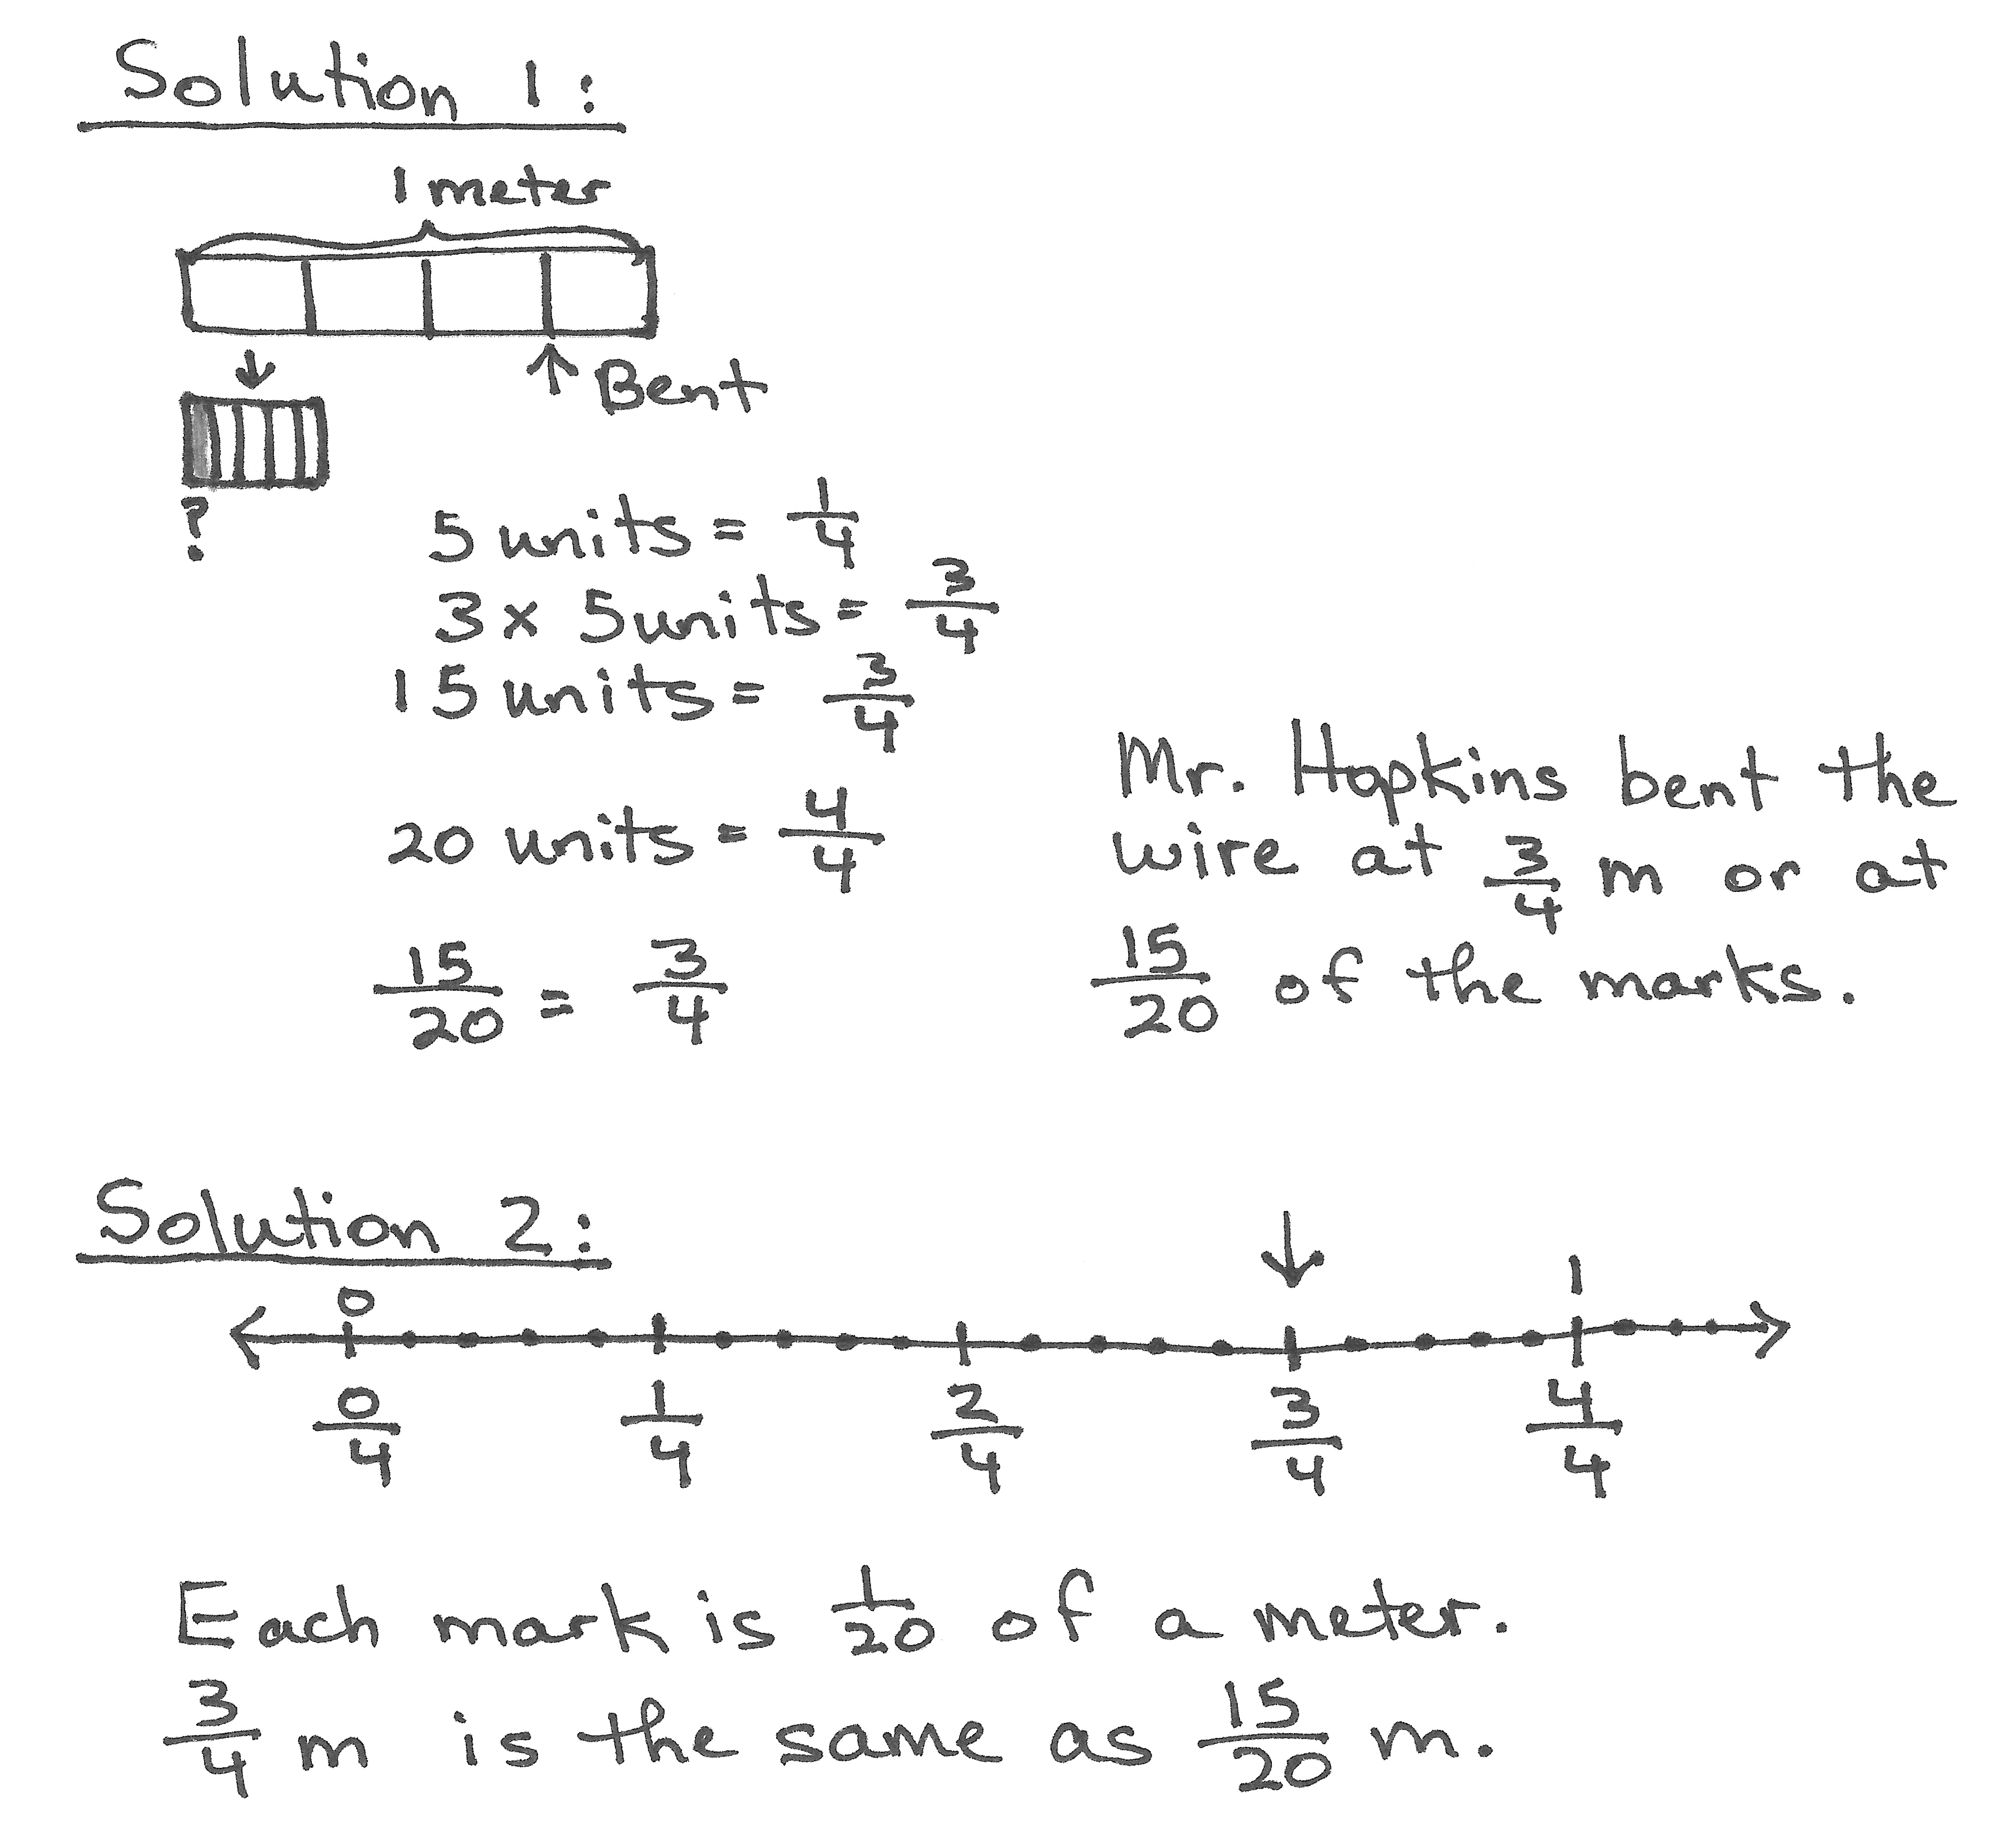 Solution 1:
1 meter
Bent
?
5 units = 1/4
3 x 5 units = 3/4
15 units = 3/4
20 units = 4/4
15/20 = 3/4
Mr. Hopkins bent the
wire at 3/4 m or at
15/20 of the marks.
Solution 2:
0 1
0/4 1/4 2/4 3/4 4/4
Each mark is 1/20 of a meter.
3/4 m is the same as 15/20 m.